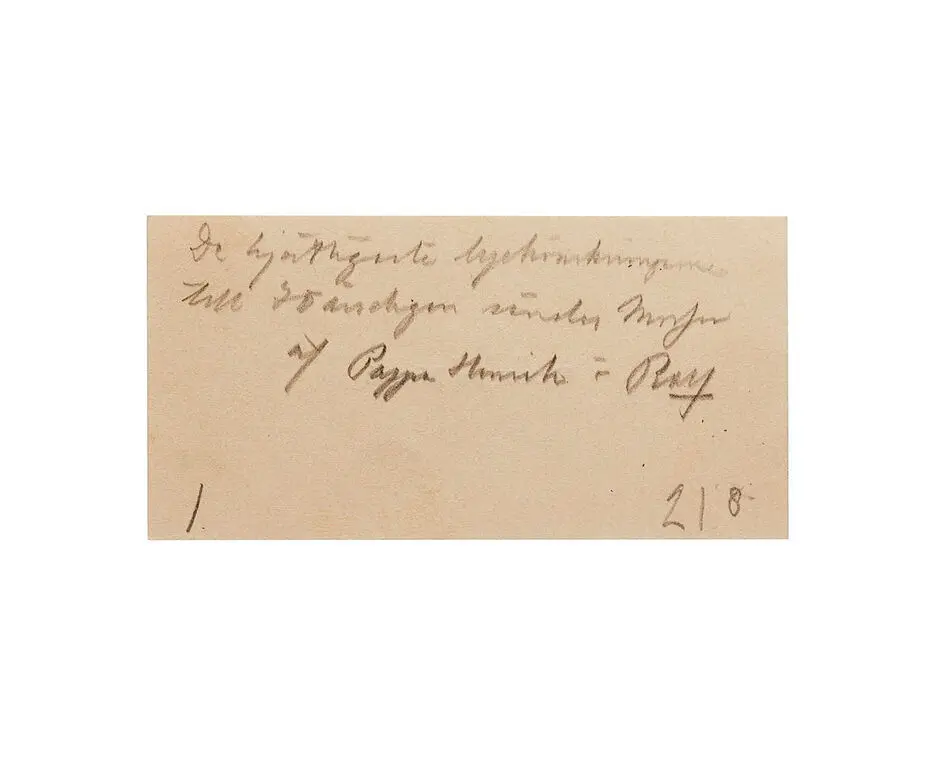 De hjärtligaste lyckönskningarna
till 70 årsdagen sänder Morfar
af Pappa Henrik o Rolf
1 218